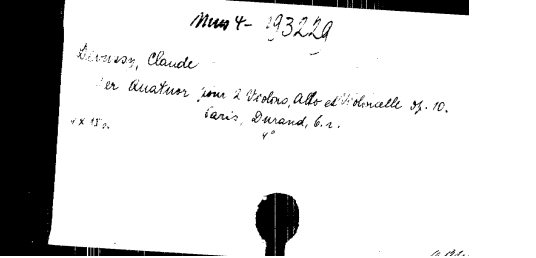 Mus 4- 193229
Debussy, Claude
1er Quatuor pour 2 Violons, Alto et Violoncelle Op. 10.
Paris, Durand, s.
4 x 15 s.
4°